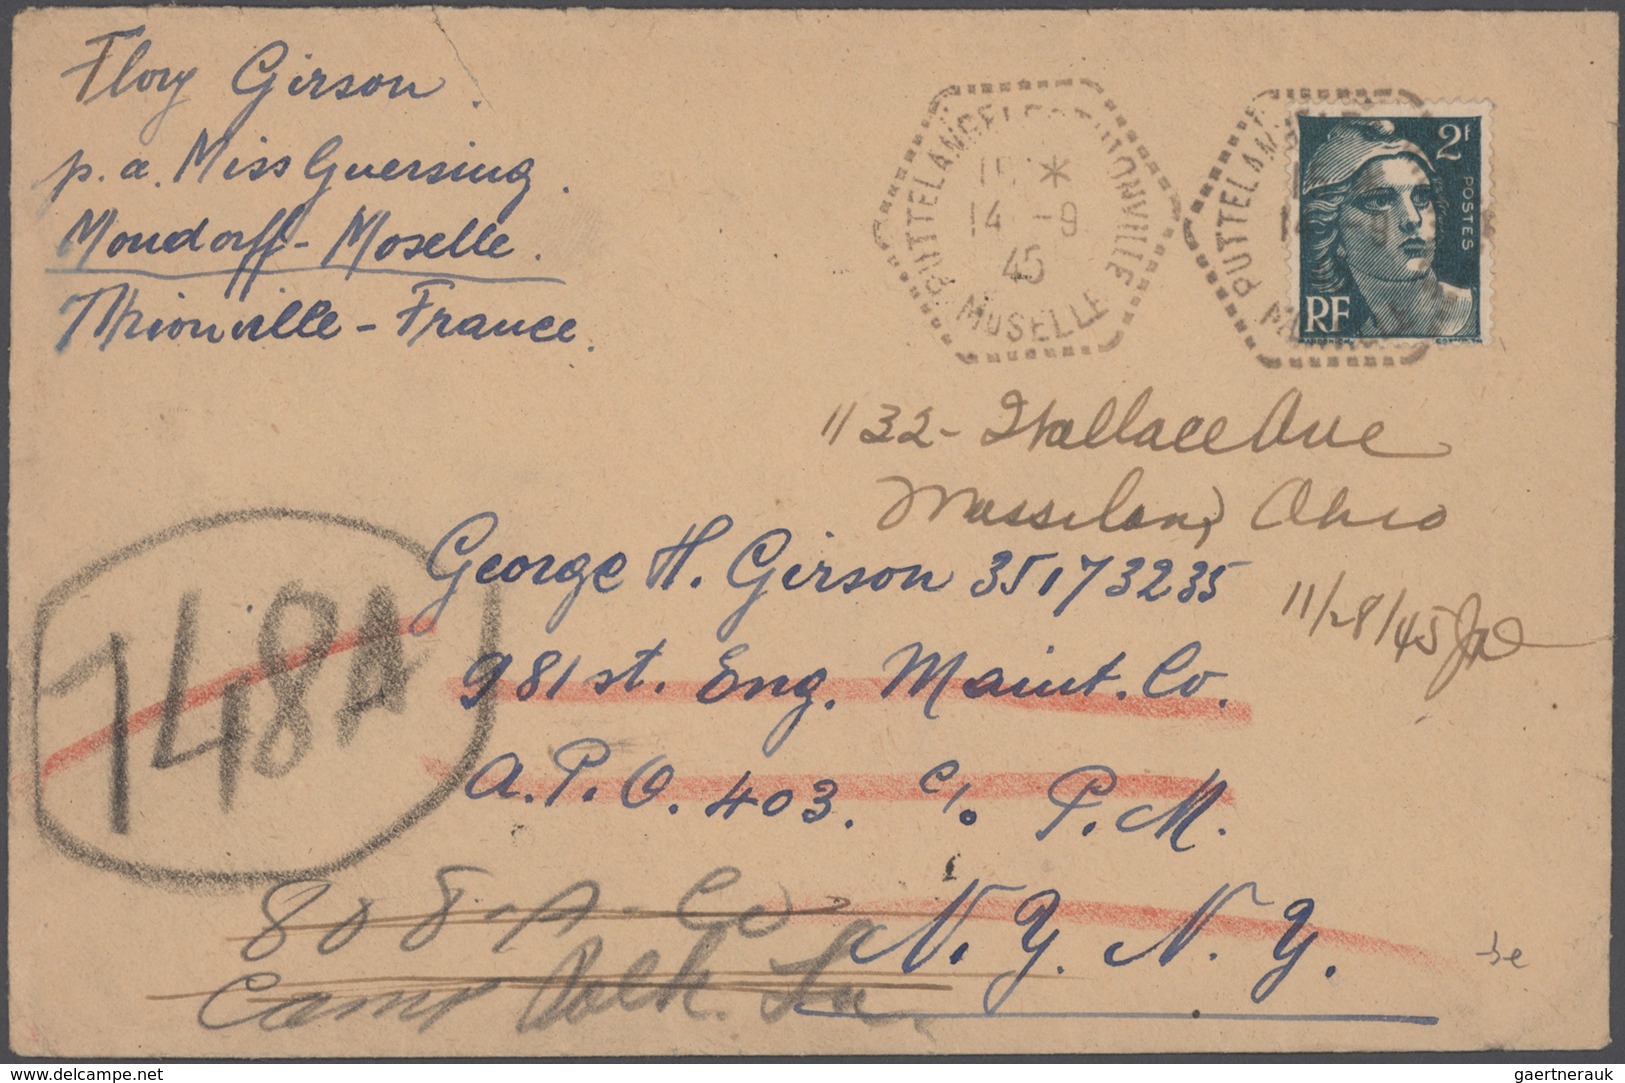 Flory Girson.
p.a. Miss Guersing.
Mondorff-Moselle.
Thionville-France.
PUTTELANGE LES THIONVILLE
* 
14 -9
45
MOSELLE
PUTTELAN
2F
POSTES
RF
1132- Wallace Ave
Massilon, Ohio
George H. Girson 35173235
11/28/45
981st. Eng. Maint. Co.
A.P.O. 403. c/o P.M.
N.Y. N.Y.
748A
808-A- Co
Camp Polk. La.
delcampe.net
gaertnerauk